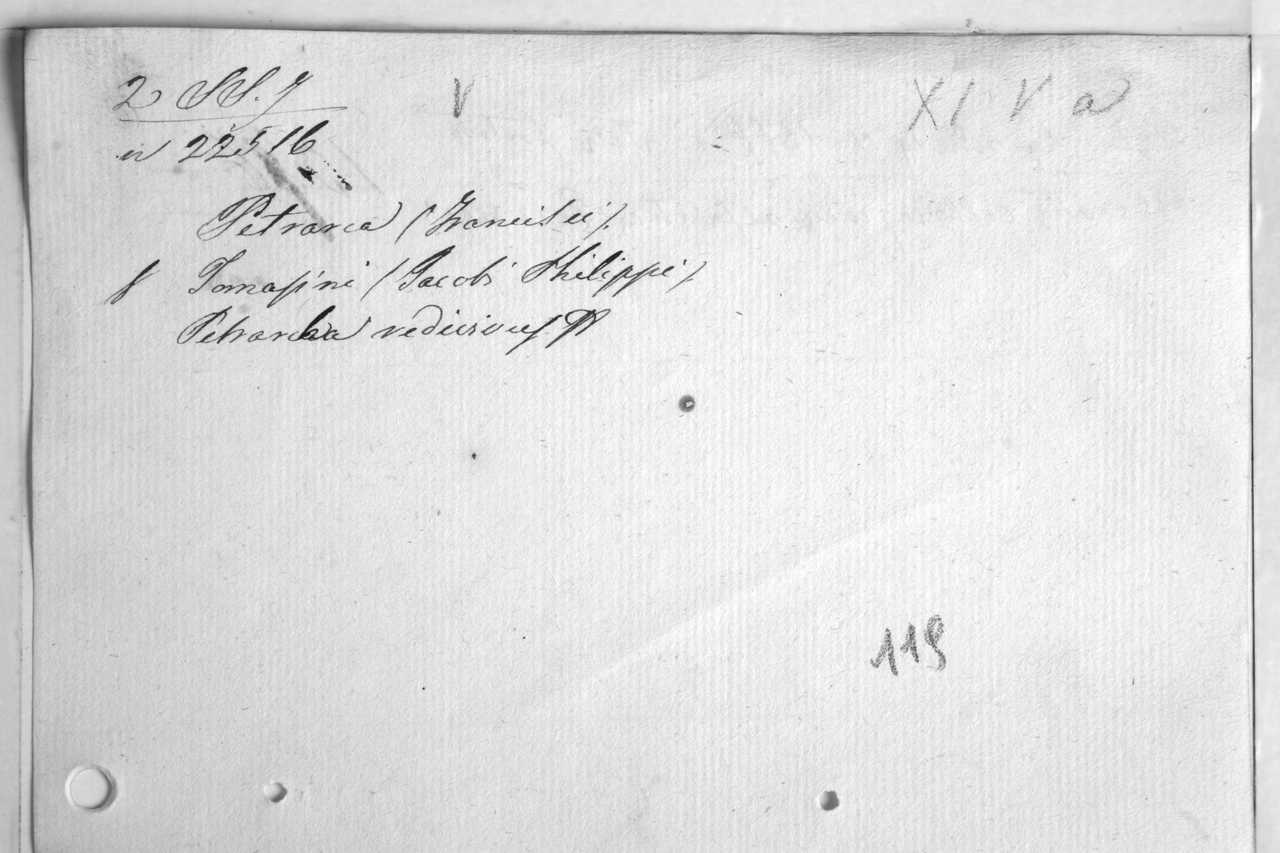 2 SS. J V XI V a
in 22516
Petrarca (Francisci).
f Tomasini (Jacobi Philippi)
Petrarcha redivivus
119